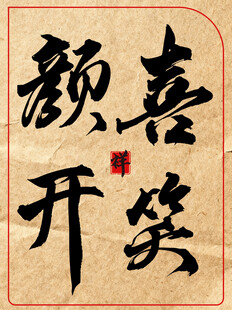 喜笑
颜开
祥